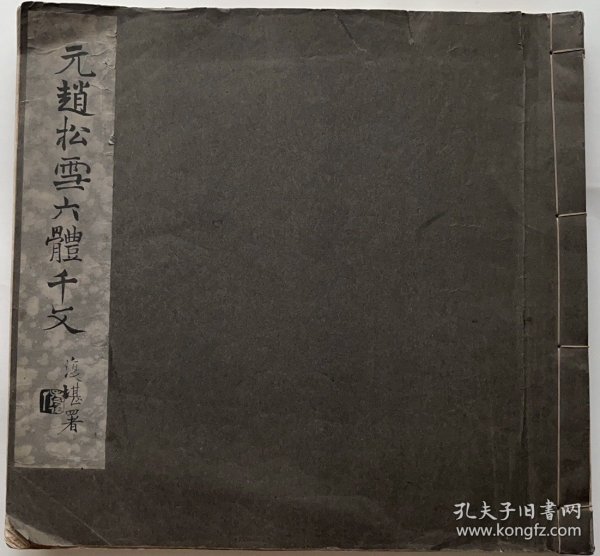 元趙松雪六體千文
堪署
孔夫子旧書网
www.kongfz.com